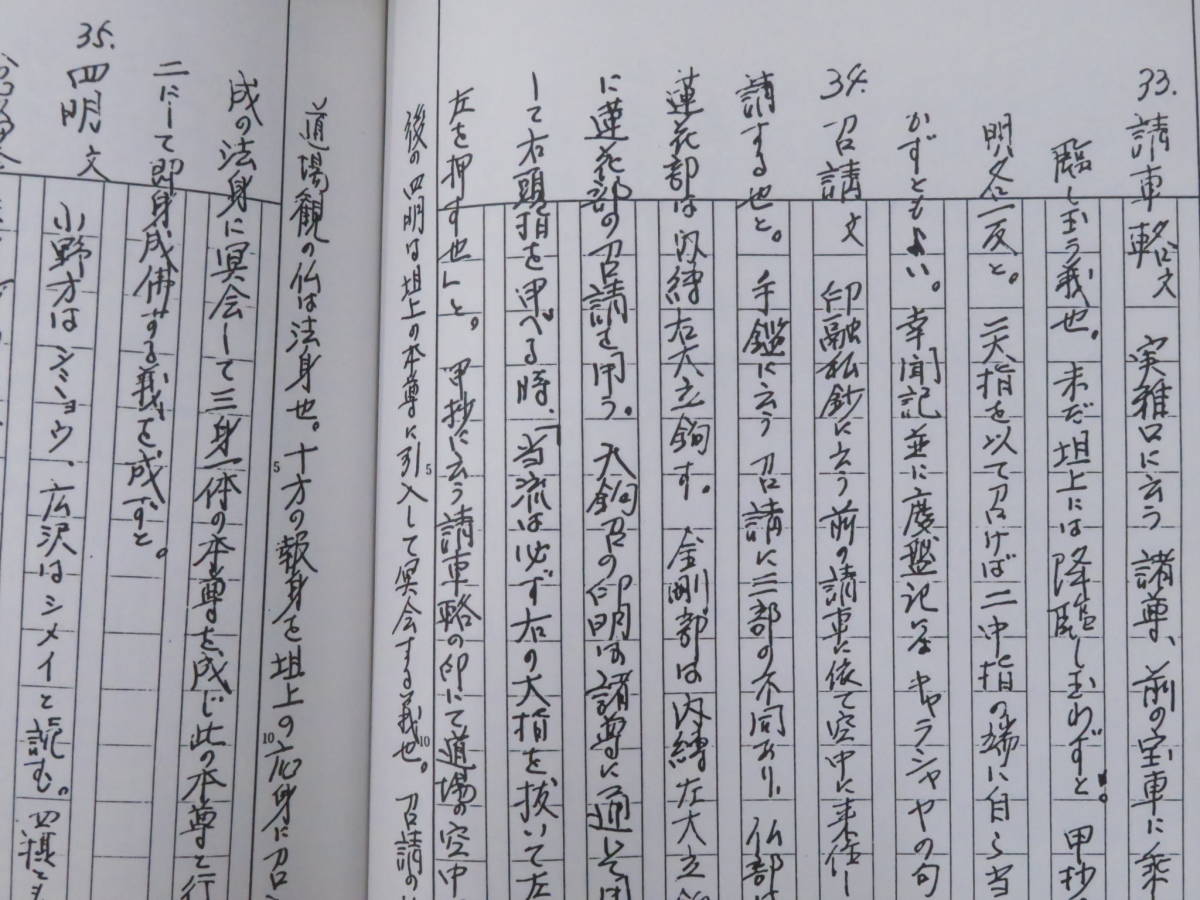 33. 請車輅文 実雅口に云う 諸尊、前の宝車に乗
臨し玉う義也。未だ坦上には降臨し玉わずと。甲抄
明各一反と。二大指を以て召けば二中指の端に自ら当
かずともよい。幸聞記並に慶盤記等 キャラシャヤの句
34. 召請文 印融私鈔に云う 前の請車に依て空中に来住し
請する也と。 手鑑に云う 召請に三部の不同あり、仏部は
蓮花部は内縛右大立鉤す。金剛部は内縛左大立
に蓮花部の召請を用う。大鉤召の印明は諸尊に通じて用
して右頭指を申べる時、「当流は必ず右の大指を抜いて左
左を押す也」と。 甲抄に云う 請車輅の印にて道場の空中
後の四明は坦上の本尊に引入して冥会する義也。召請の
5
10
道場観の仏は法身也。十方の報身を坦上の応身に召
成の法身に冥会して三身一体の本尊を成じ此の本尊と行
二にして即身成佛する義を成ずと。
35. 四明文
小野方はシミョウ、広沢はシメイと読む。四摂とも
5
10